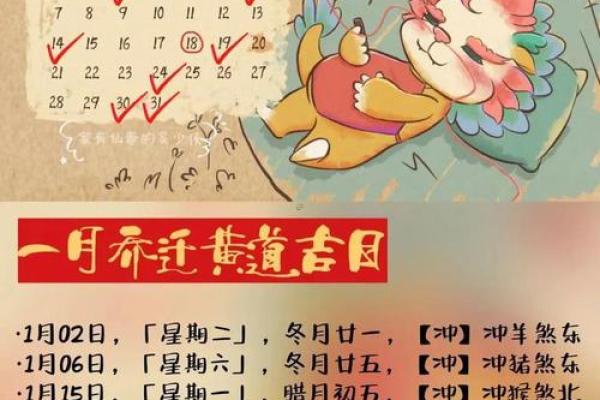 7 8 9 10 11 12 13
14 15 16 17 18 19 20
21 22 23 24 25 26 27
28 29 30 31
一月乔迁黄道吉日
·1月02日，「星期二」，冬月廿一，【冲】冲羊煞东
·1月06日，「星期六」，冬月廿五，【冲】冲猪煞东
·1月15日，「星期一」，腊月初五，【冲】冲猴煞北